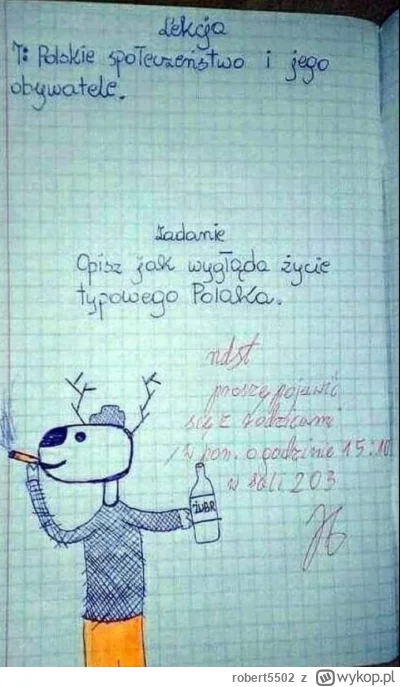 Lekcja
T: Polskie społeczeństwo i jego
obywatele.
Zadanie
Opisz jak wygląda życie
typowego Polaka.
ndst
proszę pojawić
się z rodzicami
w pon. o godzinie 15:10
w sali 203
ŻUBR
robert5502 z wykop.pl